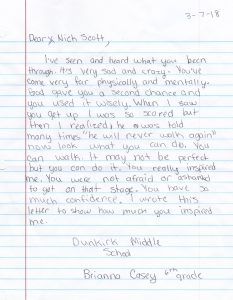 3-7-18
Dear Nick Scott,
I've seen and heard what you been
through. It's very sad and crazy. You've
come very far physically and mentally.
God gave you a second chance and
you used it wisely. When I saw
you get up I was so scared but
then I realized he was told
many times "he will never walk again"
now look what you can do. You
can walk. It may not be perfect
but you can do it. You really inspired
me. You were not afraid or ashamed
to get on that stage. You have so
much confidence. I wrote this
letter to show how much you inspired
me.
Dunkirk Middle
School
Brianna Casey 6th grade